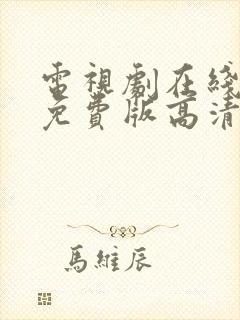 電視劇在綫
免費版高清
馬維辰